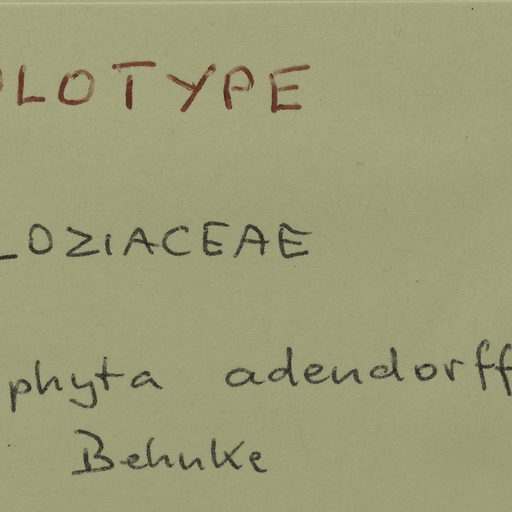 OLOTYPE
LOZIACEAE
phyta adendorff
Behnke